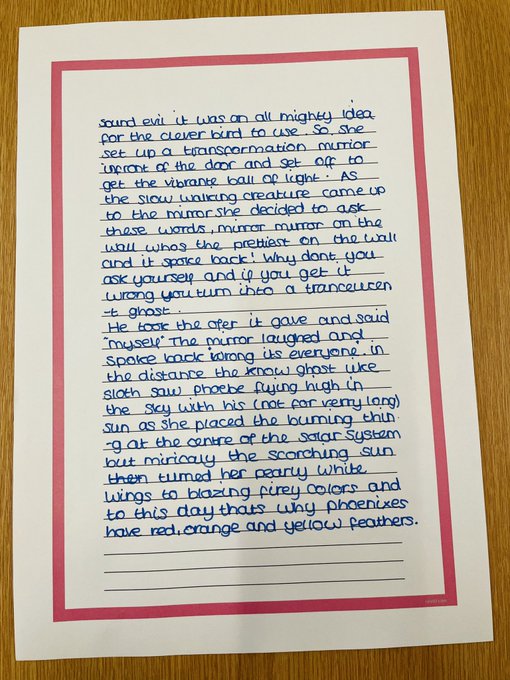 sound evil it was an all mighty idea
for the clever bird to use. So, she
set up a transformation mirrior
infront of the door and set off to
get the vibrante ball of light. As
the slow walking creature came up
to the mirror she decided to ask
these words, mirror mirror on the
wall whos the prettiest on the wall
and it spoke back! Why dont you
ask yourself and if you get it
wrong you turn into a trancelucen
-t ghost.
He took the ofer it gave and said
"myself" The mirror laughed and
spoke back wrong its everyone. in
the distance the know ghost like
sloth saw phoebe flying high in
the sky with his (not for verry long)
sun as she placed the burning thin
-g at the centre of the solar system
but miricaly the scorching sun
then turned her pearly white
wings to blazing firey colors and
to this day thats why phoenixes
have red, orange and yellow feathers.